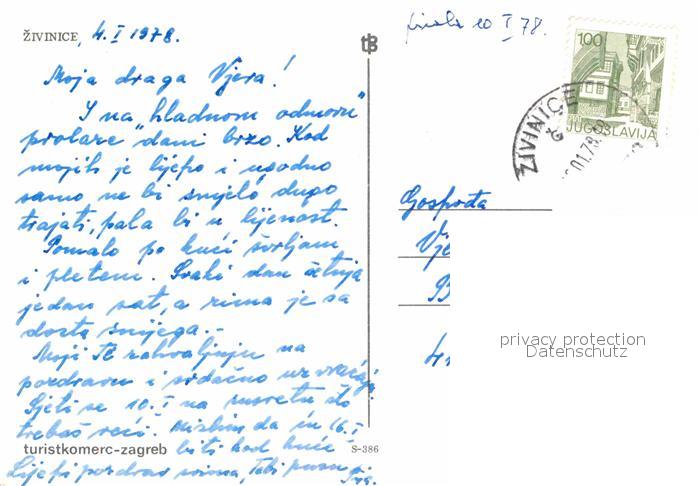 ŽIVINICE, 4. I 1978.
Moja draga Vjera!
I na "hladnom odmoru"
prolaze dani brzo. Kod
mojih je lijepo i ugodno
samo ne bi smjelo dugo
trajati, pala bi u lijenost.
Pomalo po kući švrljam
i pletem. Svaki dan šetnja
jedan sat, a zima je sa
dosta snijega. -
Moji Ti zahvaljuju na
pozdravu i srdačno uzvraćaju
Sjeti se 10. I na susretu što
trebaš reći. Mislim da ću 16. I
biti kod kuće
Lijepi pozdrav svima, Tebi
turistkomerc-zagreb
S-386
tz
10 I 78.
100
JUGOSLAVIJA
ŽIVINICE
.01.78
Gospođa
Vje
B
privacy protection
Datenschutz